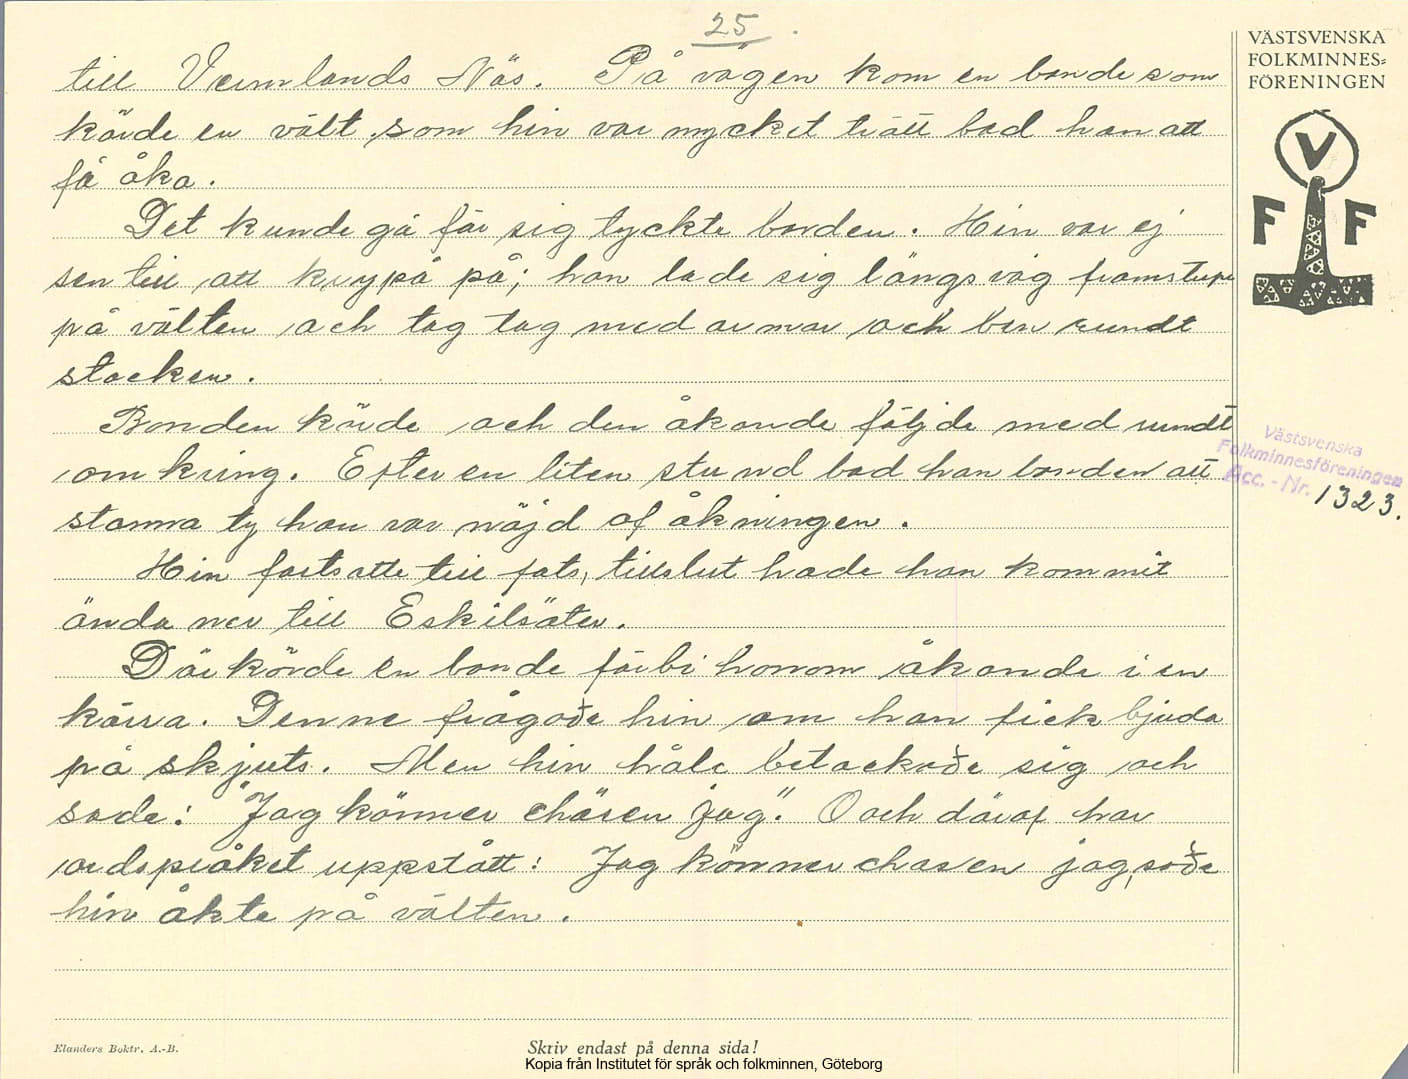 25
till Vermlands Näs. På vägen kom en bonde som
körde en vält, som hin var mycket trött bad han att
få åka.
Det kunde gå för sig tyckte bonden. Hin var ej
sen till att krypa på; han lade sig längs väg framstupa
på välten och tog tag med armar och ben rundt
stocken.
Bonden körde och den åkande följde med rundt
omkring. Efter en liten stund bad han bonden att
stanna ty han var nöjd af åkningen.
Hin fortsatte till fots, tillslut hade han kommit
ända ner till Eskilsäter.
Där körde en bonde förbi honom åkande i en
kärra. Denne frågade hin om han fick bjuda
på skjuts. Men hin håle betackade sig och
sade: "Jag känner chäsen jag". Och däraf har
ordspråket uppstått: Jag känner chasen jag, sade
hin åkte på välten.
VÄSTSVENSKA
FOLKMINNES=
FÖRENINGEN
V
F F
Västsvenska
Folkminnesföreningen
Acc. - Nr. 1323.
Elanders Boktr. A.-B.
Skriv endast på denna sida!
Kopia från Institutet för språk och folkminnen, Göteborg